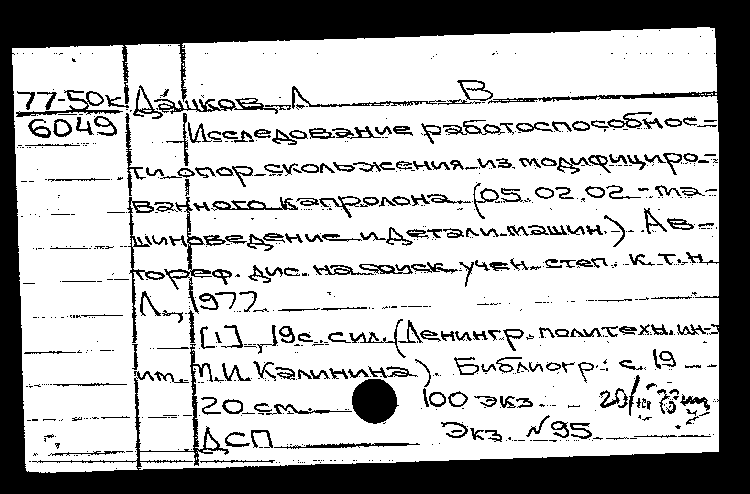 77-50к Дашков, Л В
6049 Исследование работоспособнос-
ти опор скольжения из модифициро-
ванного капролона (05.02.02 - ма-
шиноведение и детали машин). Ав-
тореф. дис. на соиск учен. степ. к.т.н.
Л., 1977
[1], 19с. с ил. (Ленингр. политехн. ин-т
им. М.И. Калинина). Библиогр.: с. 19
20 см. 100 экз. 20/III
ДСП Экз. №95